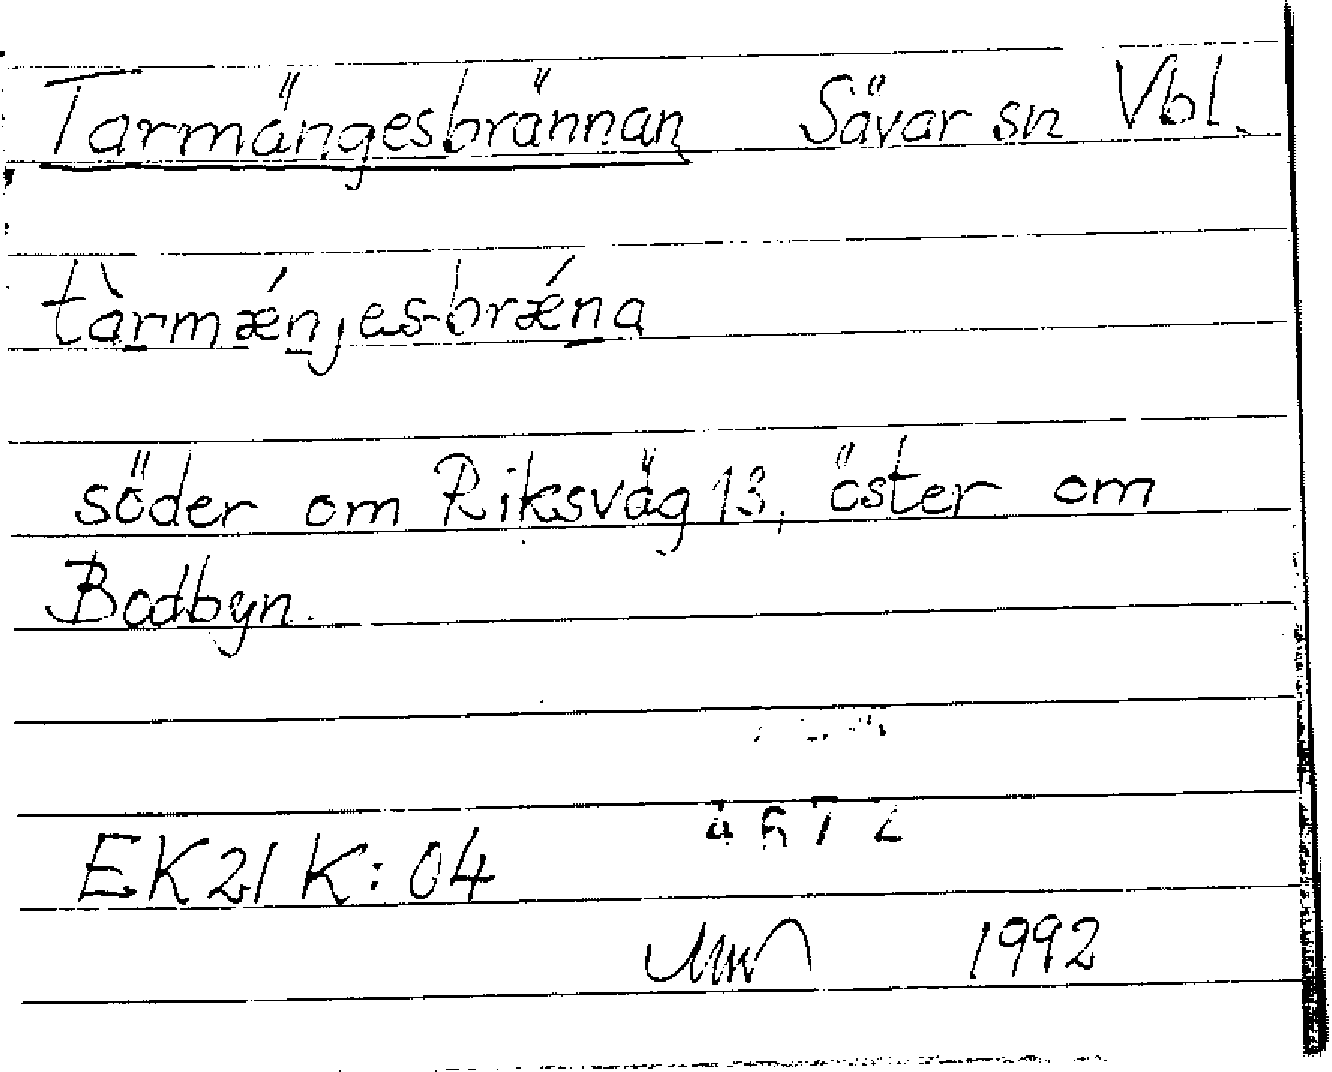 Tarmängesbrännan Sävar sn Vbl.
tàrmǽnjes-brǽna
söder om Riksväg 13, öster om
Bodbyn.
EK21 K:04
1992